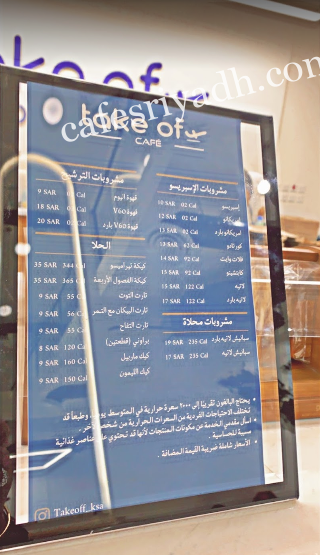 take of
cafesriyadh.com
take of
CAFÉ
مشروبات الإسبريسو
إسبريسو 02 Cal 10 SAR
أمريكانو 02 Cal 12 SAR
أمريكانو بارد 02 Cal 13 SAR
كورتادو 63 Cal 13 SAR
فلات وايت 92 Cal 14 SAR
كابتشينو 92 Cal 15 SAR
لاتيه 122 Cal 15 SAR
لاتيه بارد 122 Cal 17 SAR
مشروبات محلاة
سبانيش لاتيه بارد 235 Cal 19 SAR
سبانيش لاتيه 235 Cal 17 SAR
مشروبات الترشيح
قهوة اليوم Cal 9 SAR
قهوة V60 Cal 18 SAR
قهوة V60 بارد Cal 20 SAR
الحلا
كيكة تيراميسو 344 Cal 35 SAR
كيكة الفصول الأربعة 365 Cal 35 SAR
تارت التوت 55 Cal 9 SAR
تارت البيكان مع التمر 56 Cal 9 SAR
تارت التفاح 55 Cal 9 SAR
براوني (قطعتين) 120 Cal 8 SAR
كيك ماربيل 160 Cal 9 SAR
كيك الليمون 150 Cal 9 SAR
• يحتاج البالغون تقريبًا إلى ٢٠٠٠ سعرة حرارية في المتوسط يوميًا، وطبقًا قد
تختلف الاحتياجات الفردية من السعرات الحرارية من شخص لآخر.
• اسأل مقدمي الخدمة عن مكونات المنتجات لأنها قد تحتوي على عناصر غذائية
مسببة للحساسية.
• الأسعار شاملة ضريبة القيمة المضافة.
Takeoff_ksa